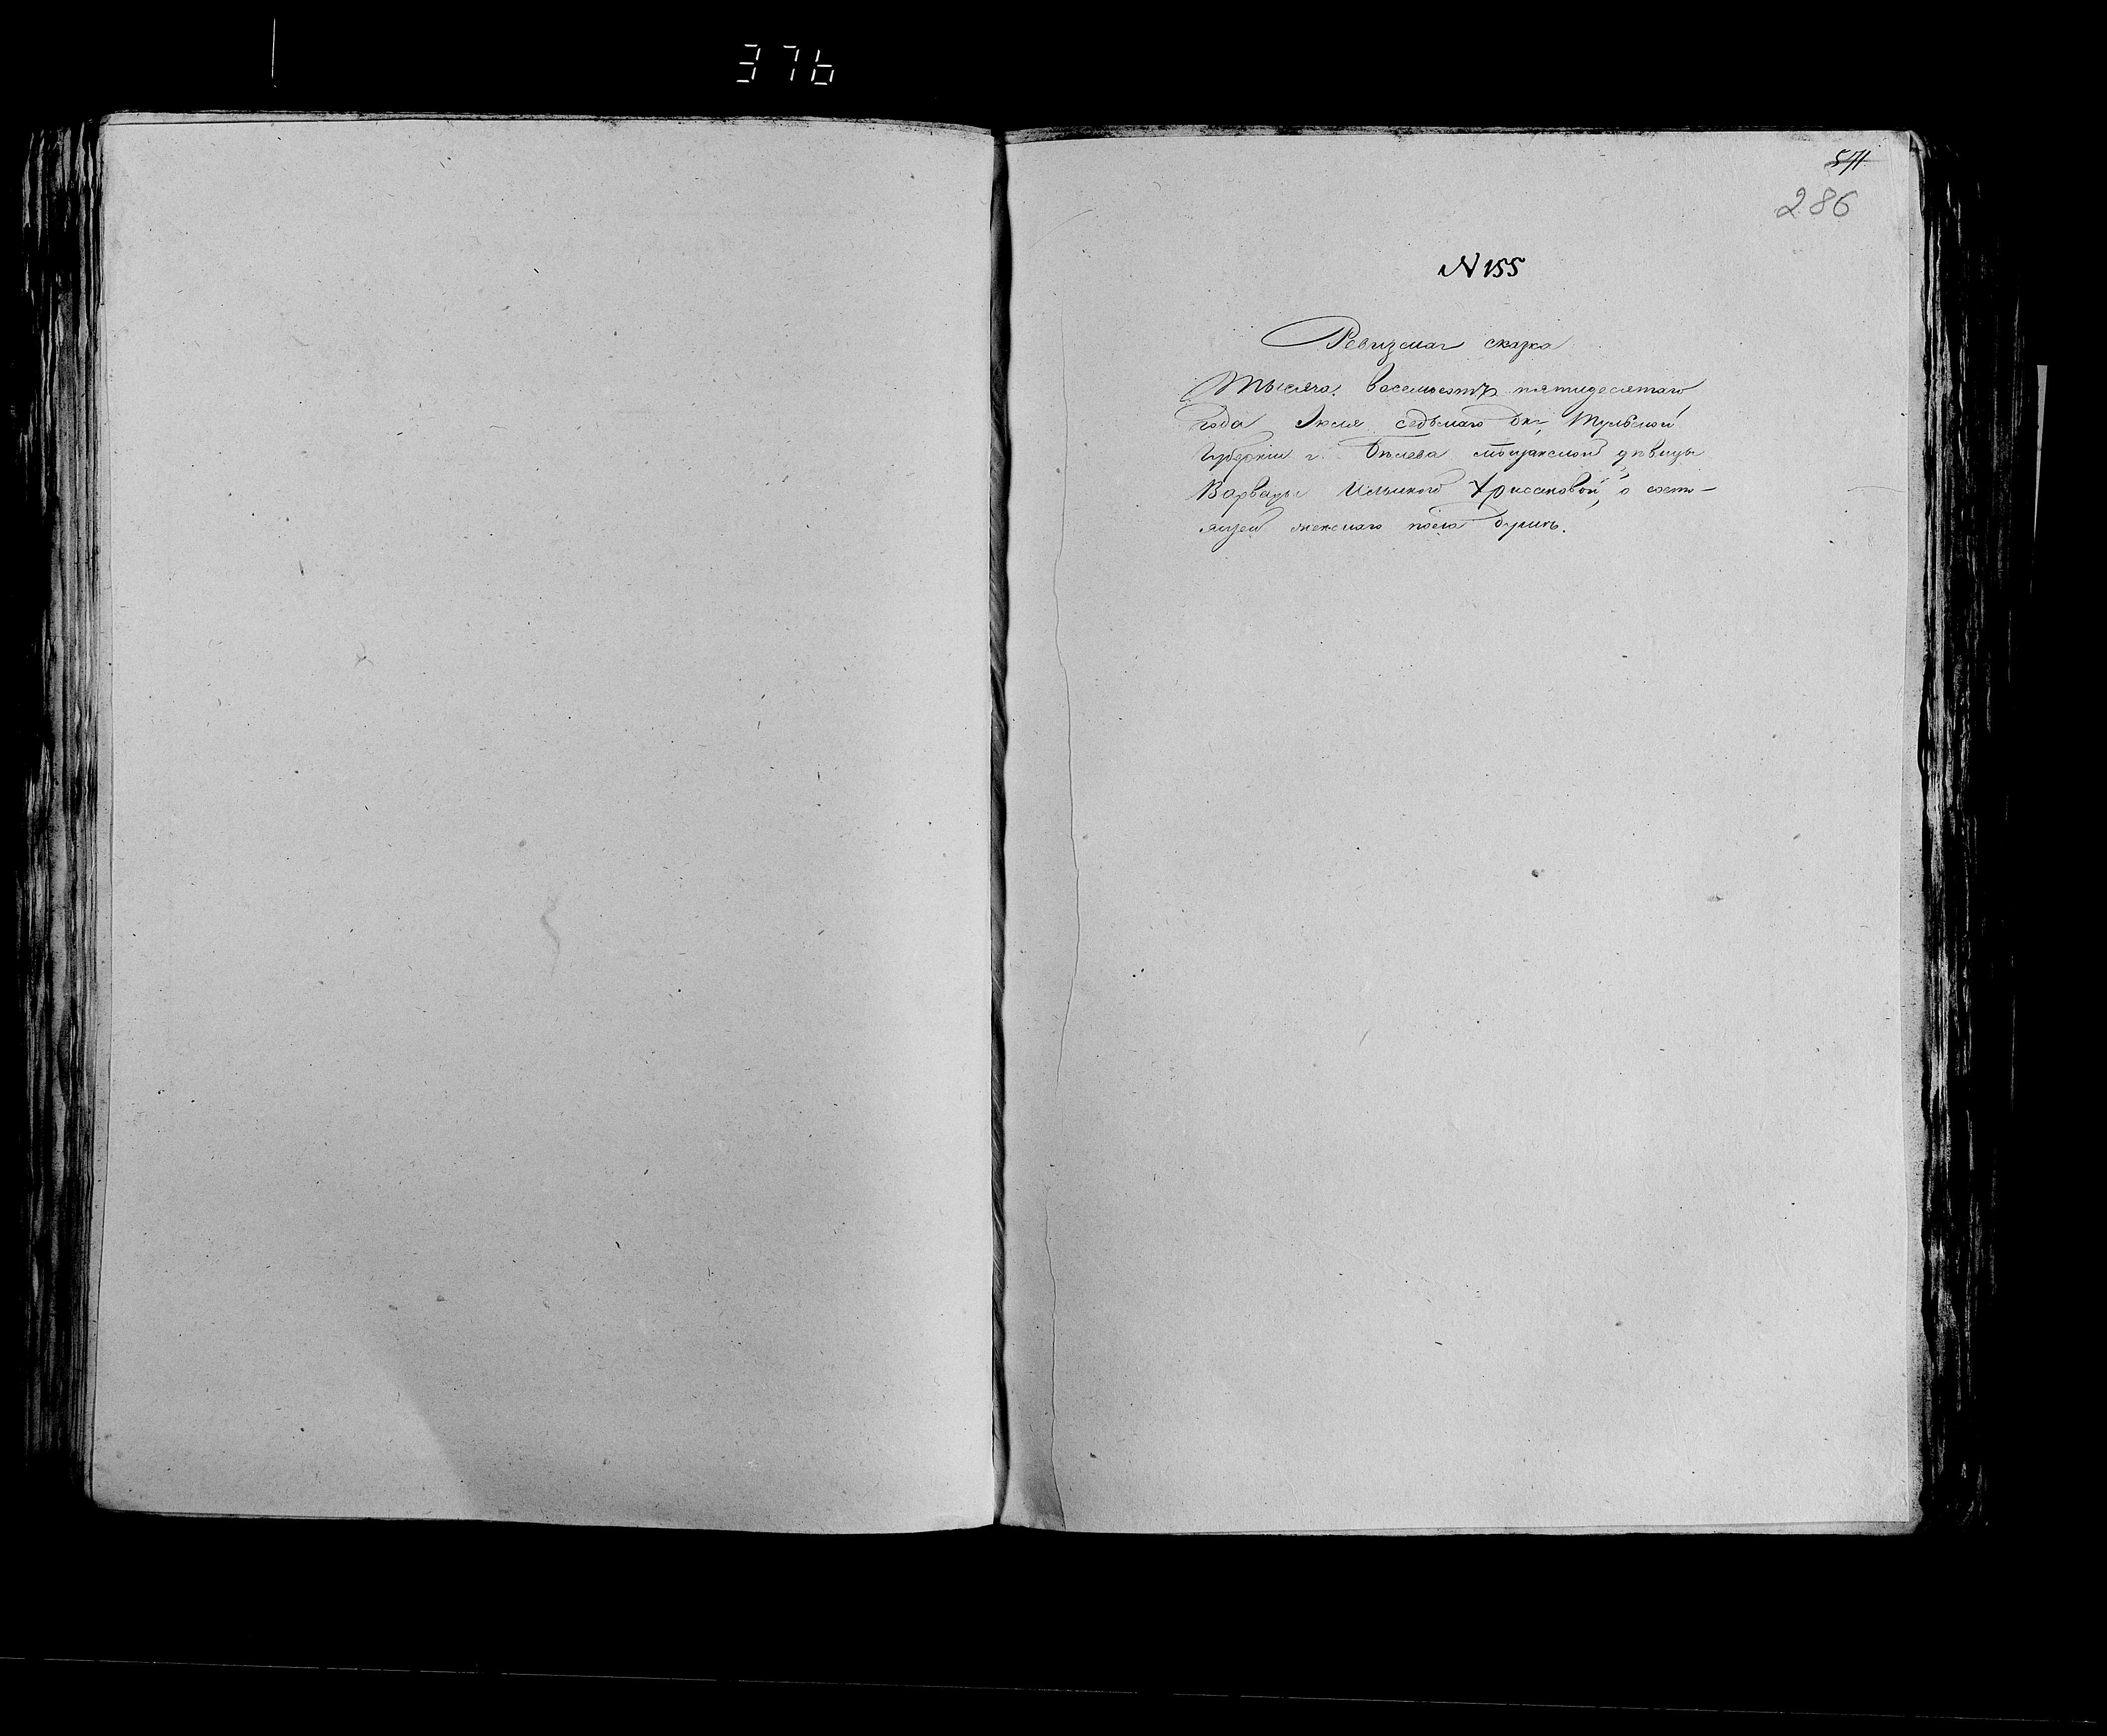 376
571
286
N 155
Ревизская сказка
Тысяча восемьсотъ пятидесятаго
года Июля седьмаго дня, Тульской
Губернии г. Бѣлева мѣщанской дѣвицы
Варвары Ильиной Хрисановой, о состо-
ящей женскаго пола душѣ.